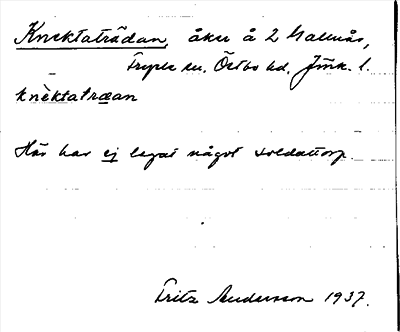 Knektaträdan, åker å 2 Gallnås,
Fryele sn. Östbo hd. Jönk. l.
knèktatraan
Här har ej legat något soldattorp.
Fritz Andersson 1937.